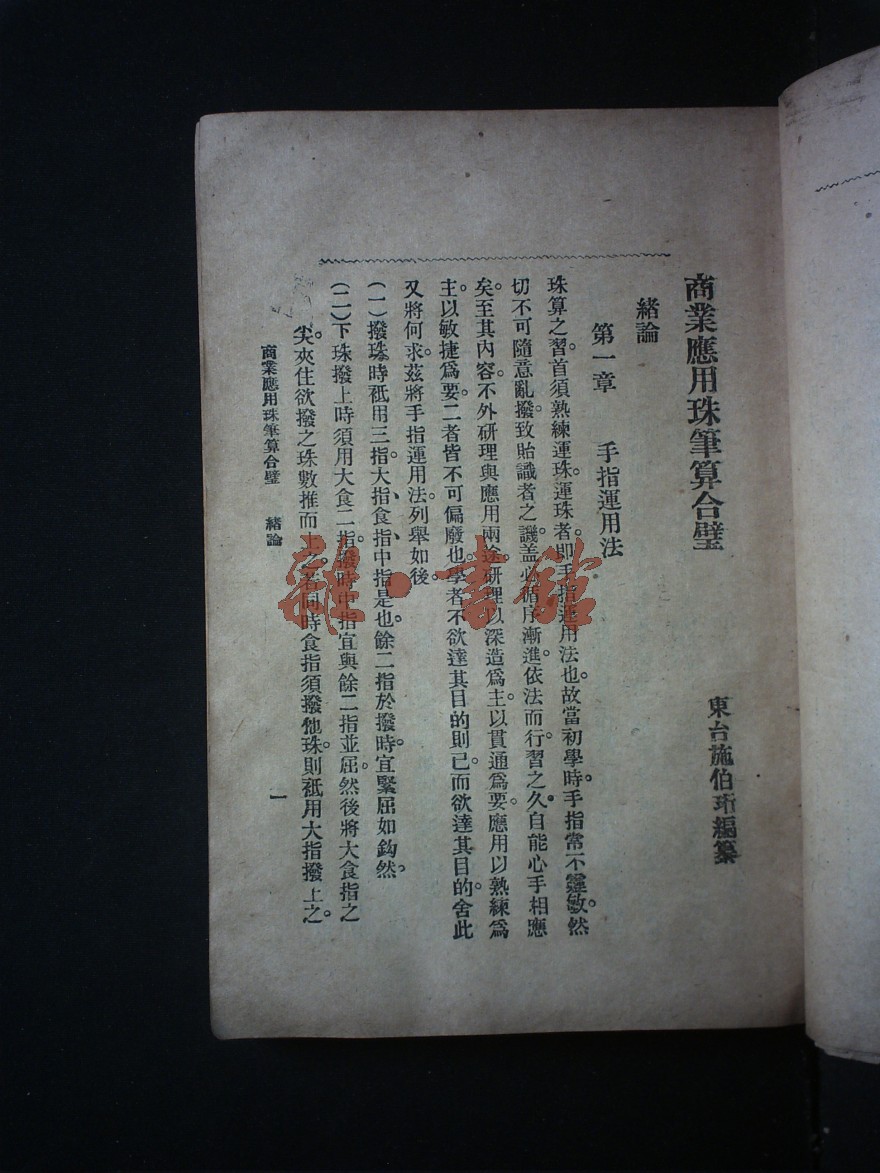 商業應用珠筆算合璧
東台施伯珩編纂
緒論
第一章　手指運用法
珠算之習。首須熟練運珠。運珠者。即手指運用法也。故當初學時。手指常不靈敏。然
切不可隨意亂撥。致貽識者之譏。盖必循序漸進。依法而行。習之久。自能心手相應
矣。至其內容。不外研理與應用兩途。研理以深造爲主。以貫通爲要。應用以熟練爲
主。以敏捷爲要。二者皆不可偏廢也。學者不欲達其目的則已。而欲達其目的。舍此
又將何求。茲將手指運用法。列舉如後。
(一)撥珠時祗用三指。大指、食指、中指是也。餘二指於撥時。宜緊屈如鈎然。
(二)下珠撥上時須用大食二指。撥時中指宜與餘二指並屈。然後將大食指之
尖。夾住欲撥之珠數推而上之。若同時食指須撥他珠。則祗用大指撥上之。
商業應用珠筆算合璧　緒論
一
雜·書館